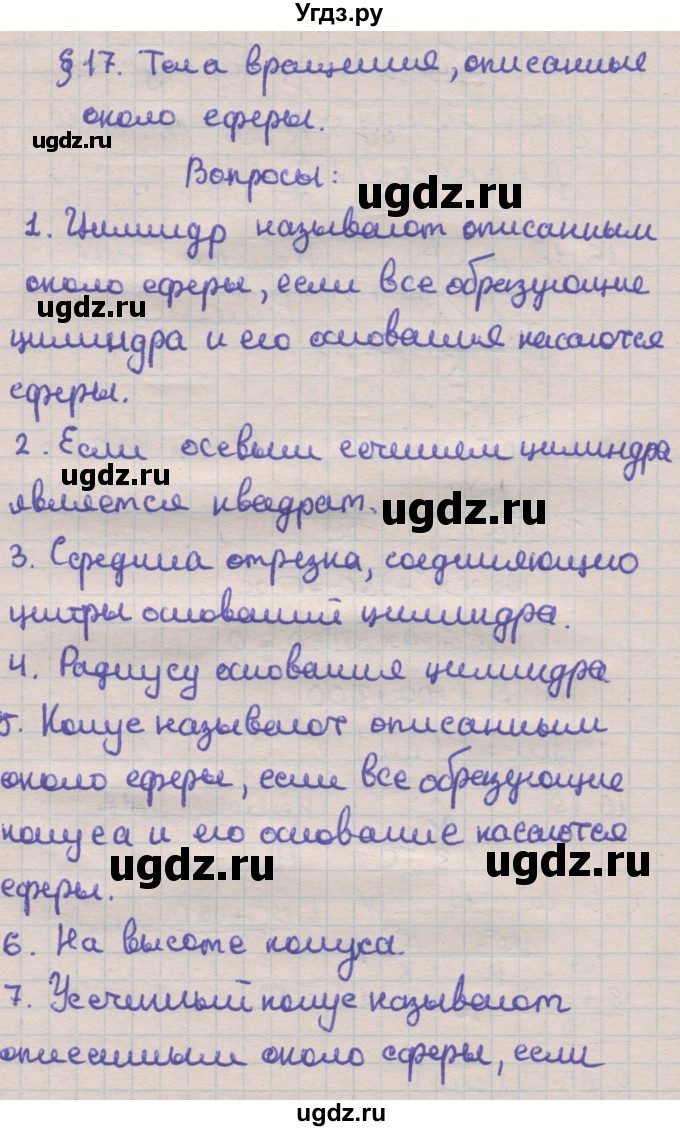 Угдз.ру
§ 17. Тела вращения, описанные
около сферы.
ugdz.ru
Вопросы:
ugdz.ru
1. Цилиндр называют описанным
около сферы, если все образующие
ugdz.ru
цилиндра и его основания касаются
сферы.
2. Если осевым сечением цилиндра
ugdz.ru
является квадрат.
ugdz.ru
3. Середина отрезка, соединяющего
центры оснований цилиндра.
4. Радиусу основания цилиндра
5. Конус называют описанным
около сферы, если все образующие
конуса и его основание касаются
ugdz.ru
ugdz.ru
сферы.
6. На высоте конуса.
7. Усеченный конус называют
описанным около сферы, если
ugdz.ru